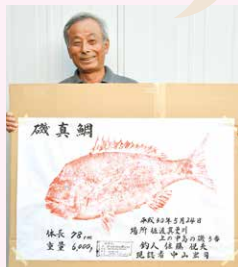 磯真鯛
体長 78cm
重量 6,000g
平成22年5月24日
場所 佐渡真更川
釣人 佐藤 悦夫
現認者 中山宏司